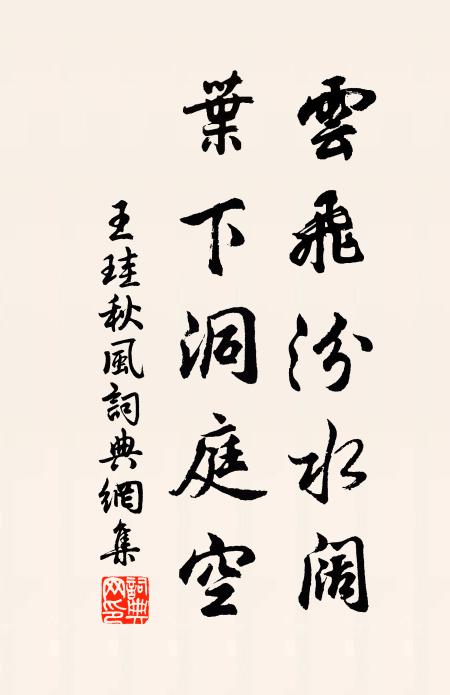 雲飛汾水阔
葉下洞庭空
王珪秋風詞典網集
詞典网印